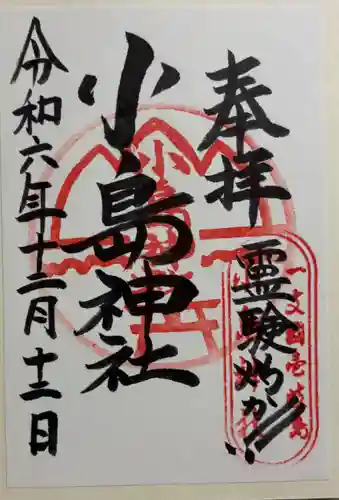 奉拝
霊験灼か!!
一支国壱岐島
小島神社
小島神社
令和六年十二月十二日